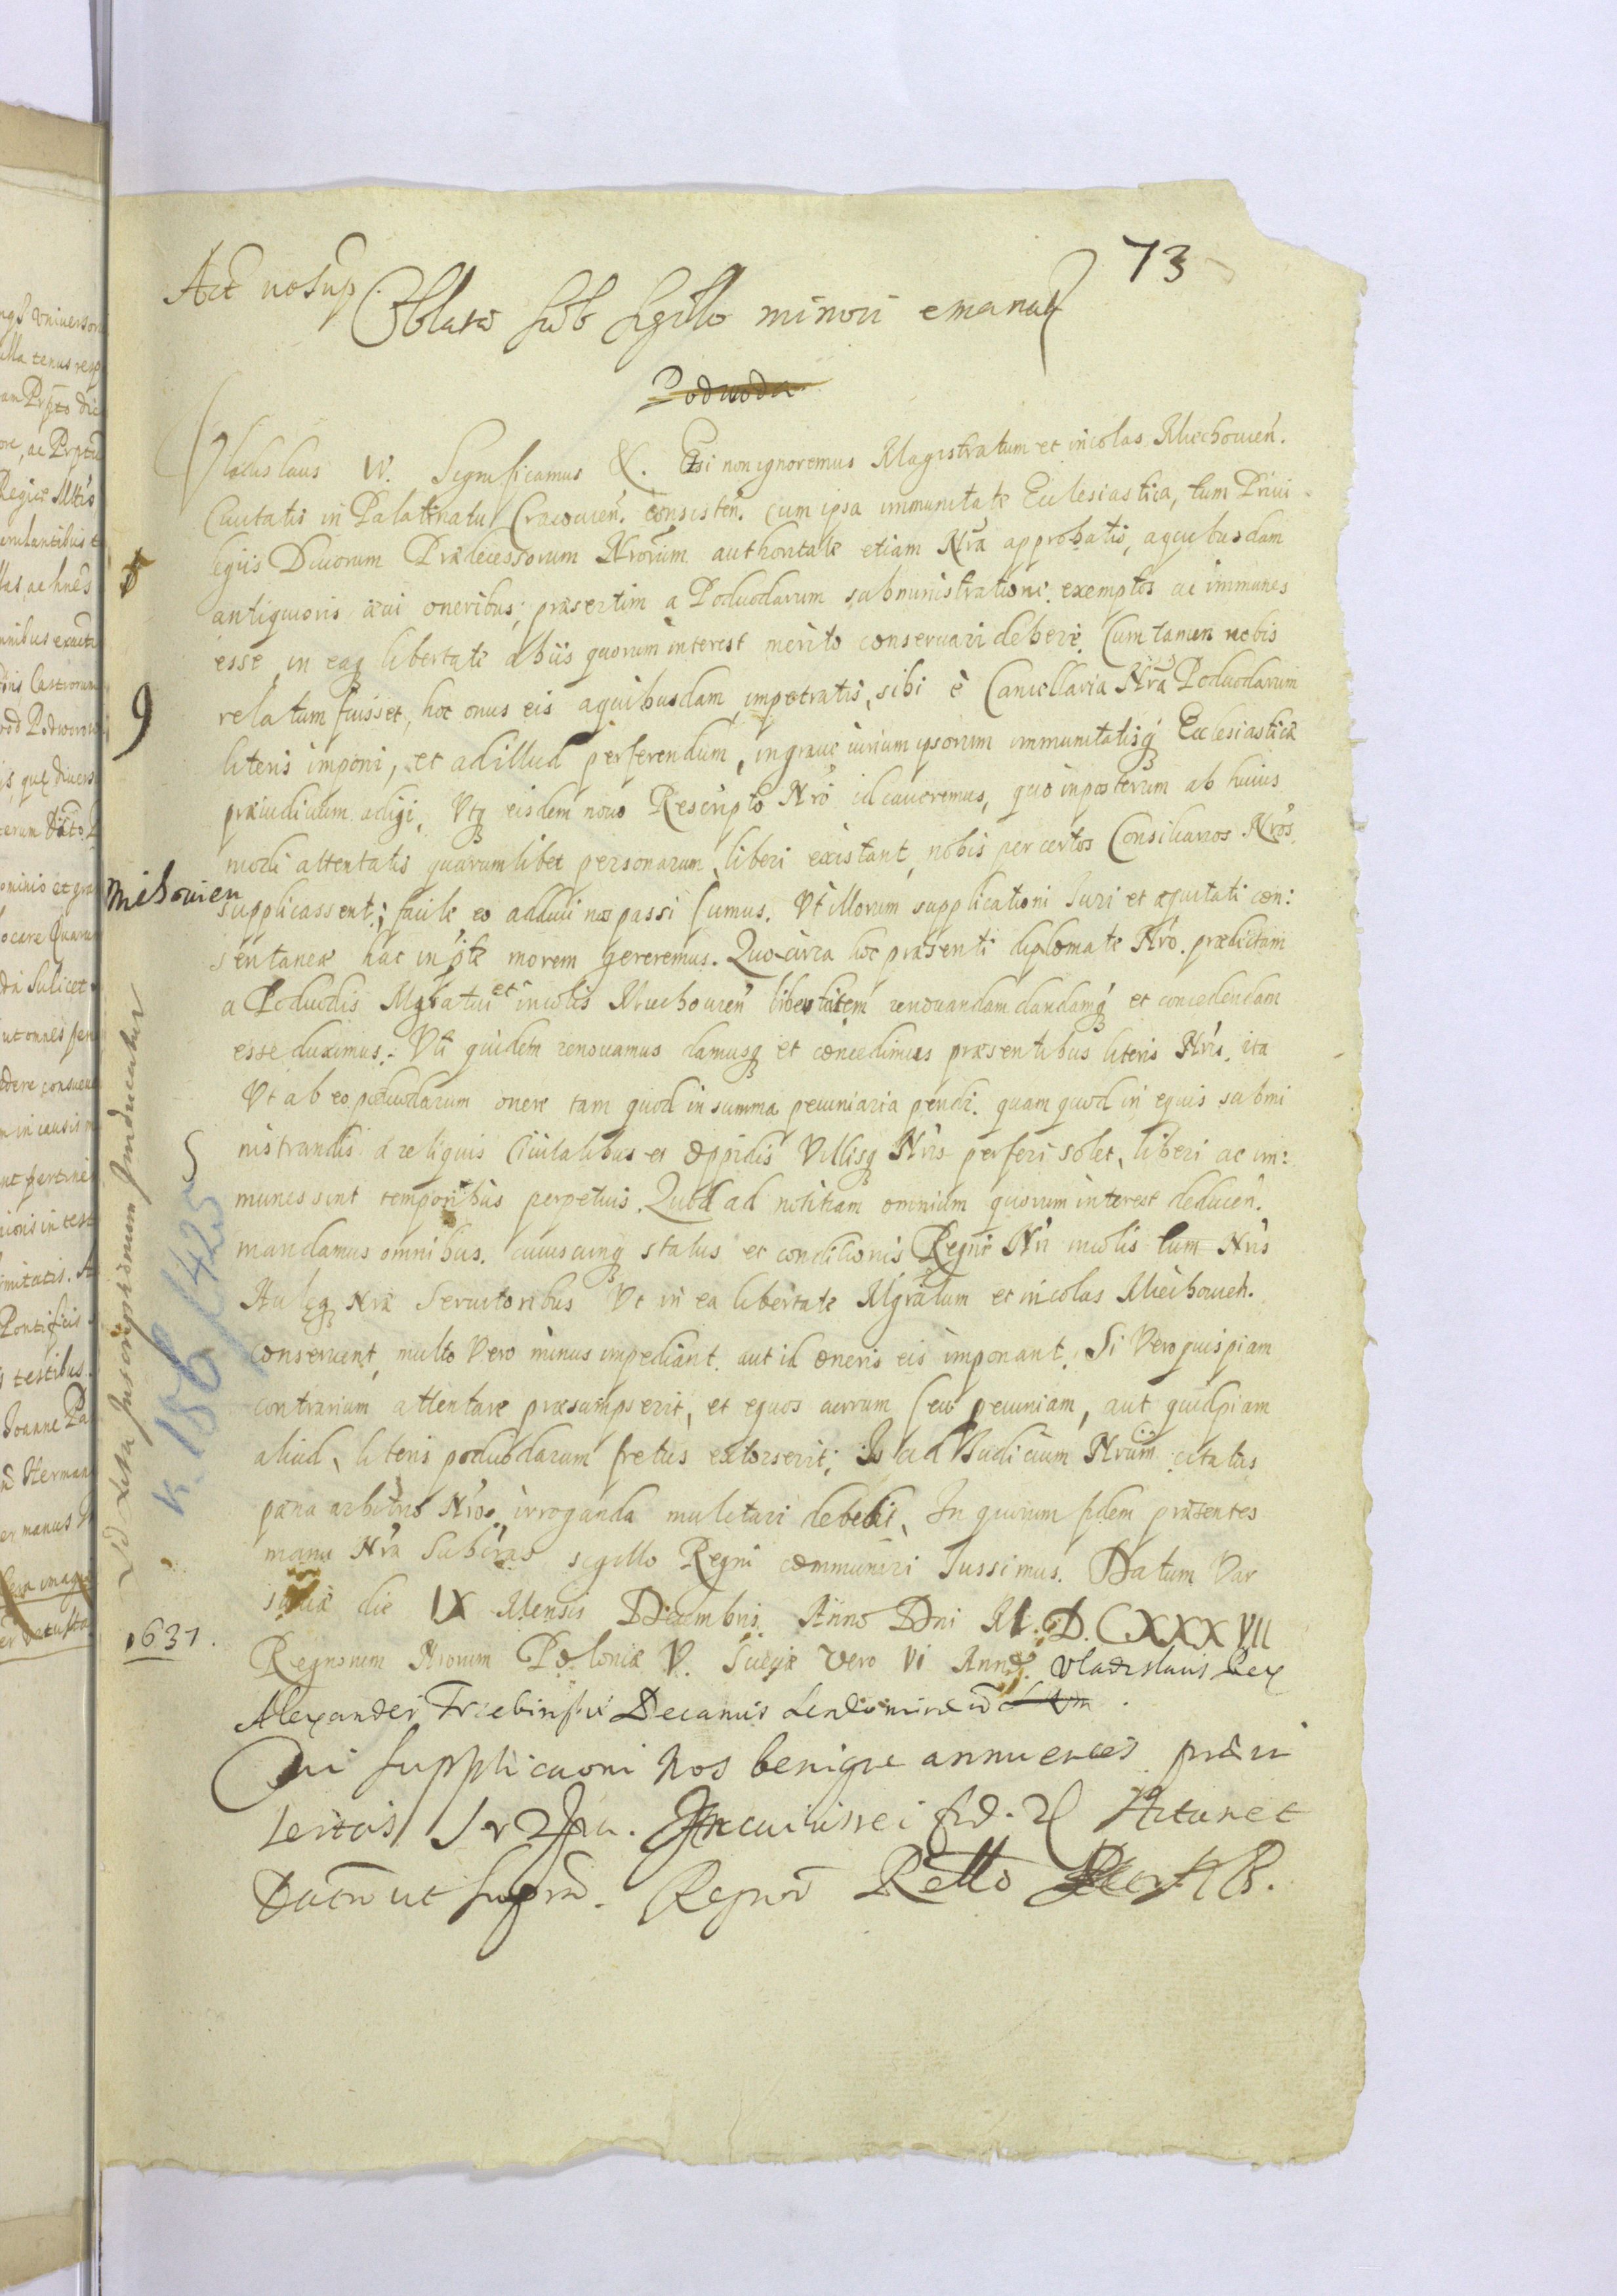 73
Act ut Sup.
Oblata sub sigillo minori emanat
Podwoda
Vladislaus IV. Significamus &. Etsi non ignoremus Magistratum et incolas Miechouien̄.
Ciuitatis in Palatinatu Cracouien̄. consisten̄. cum ipsa immunitate Ecclesiastica, tum Priui
legiis Diuorum Prædecessorum Nrōrum authoritate etiam Nrā approbatis, a quibusdam
antiquioris æui oneribus, præsertim a Poduodarum subministratione exemptos ac immunes
esse, in eaq libertate ab iis quorum interest merito conseruari debere. Cum tamen nobis
relatum fuisset, hoc onus eis a quibusdam, impetratis, sibi è Cancellaria Nrā Poduodarum
literis imponi, et ad illud perferendum, in graue iurium ipsorum immunitatisq Ecclesiasticæ
præiudicium adigi, Vtq eisdem nouo Rescripto Nrō id caueremus, quo in posterum ab huius
modi attentatis quarumlibet personarum, liberi existant, nobis per certos Consiliarios Nrōs
Miechouien
supplicassent; facile eo adduci nos passi sumus. Vt illorum supplicationi Iuri et æquitati con:
sentaneæ hac in pte morem gereremus. Quocirca hoc præsenti diplomate Nrō. prædictam
a Poduodis Mgratui et incolis Miechouien̄ libertatem renouandam dandamq et concedendam
esse duximus. Vti quidem renouamus damusq et concedimus præsentibus literis Nrīs, ita
Vt ab eo poduodarum onere tam quod in summa pecuniaria pendi. quam quod in equis submi
nistrandis a reliquis Ciuitatibus et Oppidis Villisq Nrīs perferi solet, liberi ac im:
munes sint temporibus perpetuis. Quod ad notitiam omnium quorum interest deducen̄.
mandamus omnibus. cuiuscunq status et conditionis Regni Nrī incolis tum Nrīs
Aulæq Nræ Seruitoribus Vt in ea libertate Mgratum et incolas Miechouien̄.
conseruent, multo Vero minus impediant. aut id oneris eis imponant. Si Vero quispiam
contrarium attentare præsumpserit, et equos currum seu pecuniam, aut quidpiam
aliud, literis poduodarum fretus extorserit; Is ad Iudicium Nrūm citatus
pæna arbitrio Nrō, irroganda mulctari debebit. In quorum fidem præsentes
manu Nrā Subscrās sigillo Regni communiri Iussimus. Datum Var
sauiæ die IX Mensis Decembris Anno Dni M. D. CXXXVII
1637.
Regnorum Nrorum Poloniæ V. Sueciæ Vero VI Anno. Vladislaus Rex
Alexander Trzebinski Decanus
supplicaoni nos benigne annuentes
Actum et
Datum ut supra.
K. 186/425